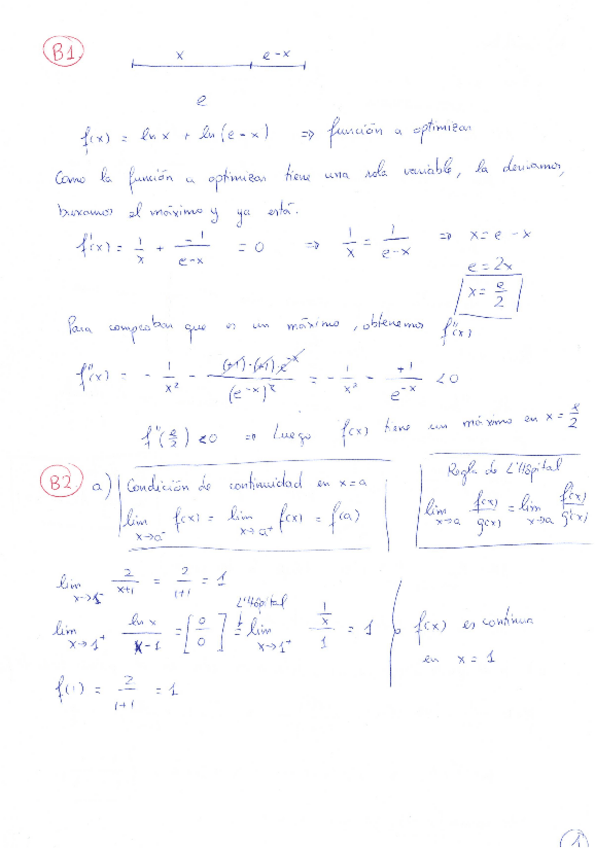 B1
x e-x
e
f(x) = ln x + ln(e-x) ⇒ función a optimizar
Como la función a optimizar tiene una sola variable, la derivamos,
buscamos el máximo y ya está.
f'(x) = 1/x + -1/(e-x) = 0 ⇒ 1/x = 1/(e-x) ⇒ x = e-x
e = 2x
x = e/2
Para comprobar que es un máximo, obtenemos f''(x)
f''(x) = - 1/x² - (-1)·(-1) e^-x/(e^-x)² = - 1/x² - +1/e^-x < 0
f''(e/2) < 0 ⇒ Luego f(x) tiene un máximo en x =
B2 a) Condición de continuidad en x=a
lim x→a⁻ f(x) = lim x→a⁺ f(x) = f(a)
Regla de L'Hôpital
lim x→a f(x)/g(x) = lim x→a f'(x)/g'(x)
lim x→1⁻ 2/(x+1) = 2/(1+1) = 1
lim x→1⁺ ln x/(x-1) = [0/0] = L'Hôpital lim x→1⁺ (1/x)/1 = 1
f(1) = 2/(1+1) = 1
f(x) es continua
en x = 1
1